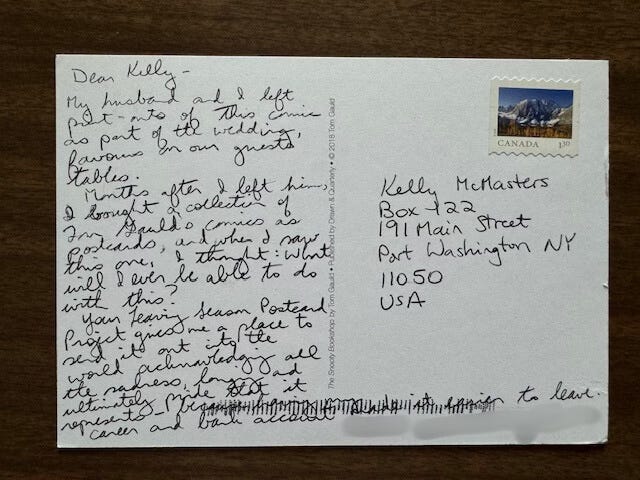 Dear Kelly –
My husband and I left
print-outs of this comic
as part of the wedding
favours on our guests
tables.
Months after I left him,
I bought a collection of
Tom Gauld's comics as
postcards, and when I saw
this one, I thought: What
will I ever be able to do
with this?
Your Leaving Season Postcard
Project gives me a place to
send it out into the
world acknowledging all
the sadness, longing and
ultimately pride that it
represents – because having my own
career and bank account made it easier to leave.
The Snooty Bookshop by Tom Gauld • Published by Drawn & Quarterly • © 2018 Tom Gauld
CANADA 1.30
Kelly McMasters
Box 122
191 Main Street
Port Washington NY
11050
USA